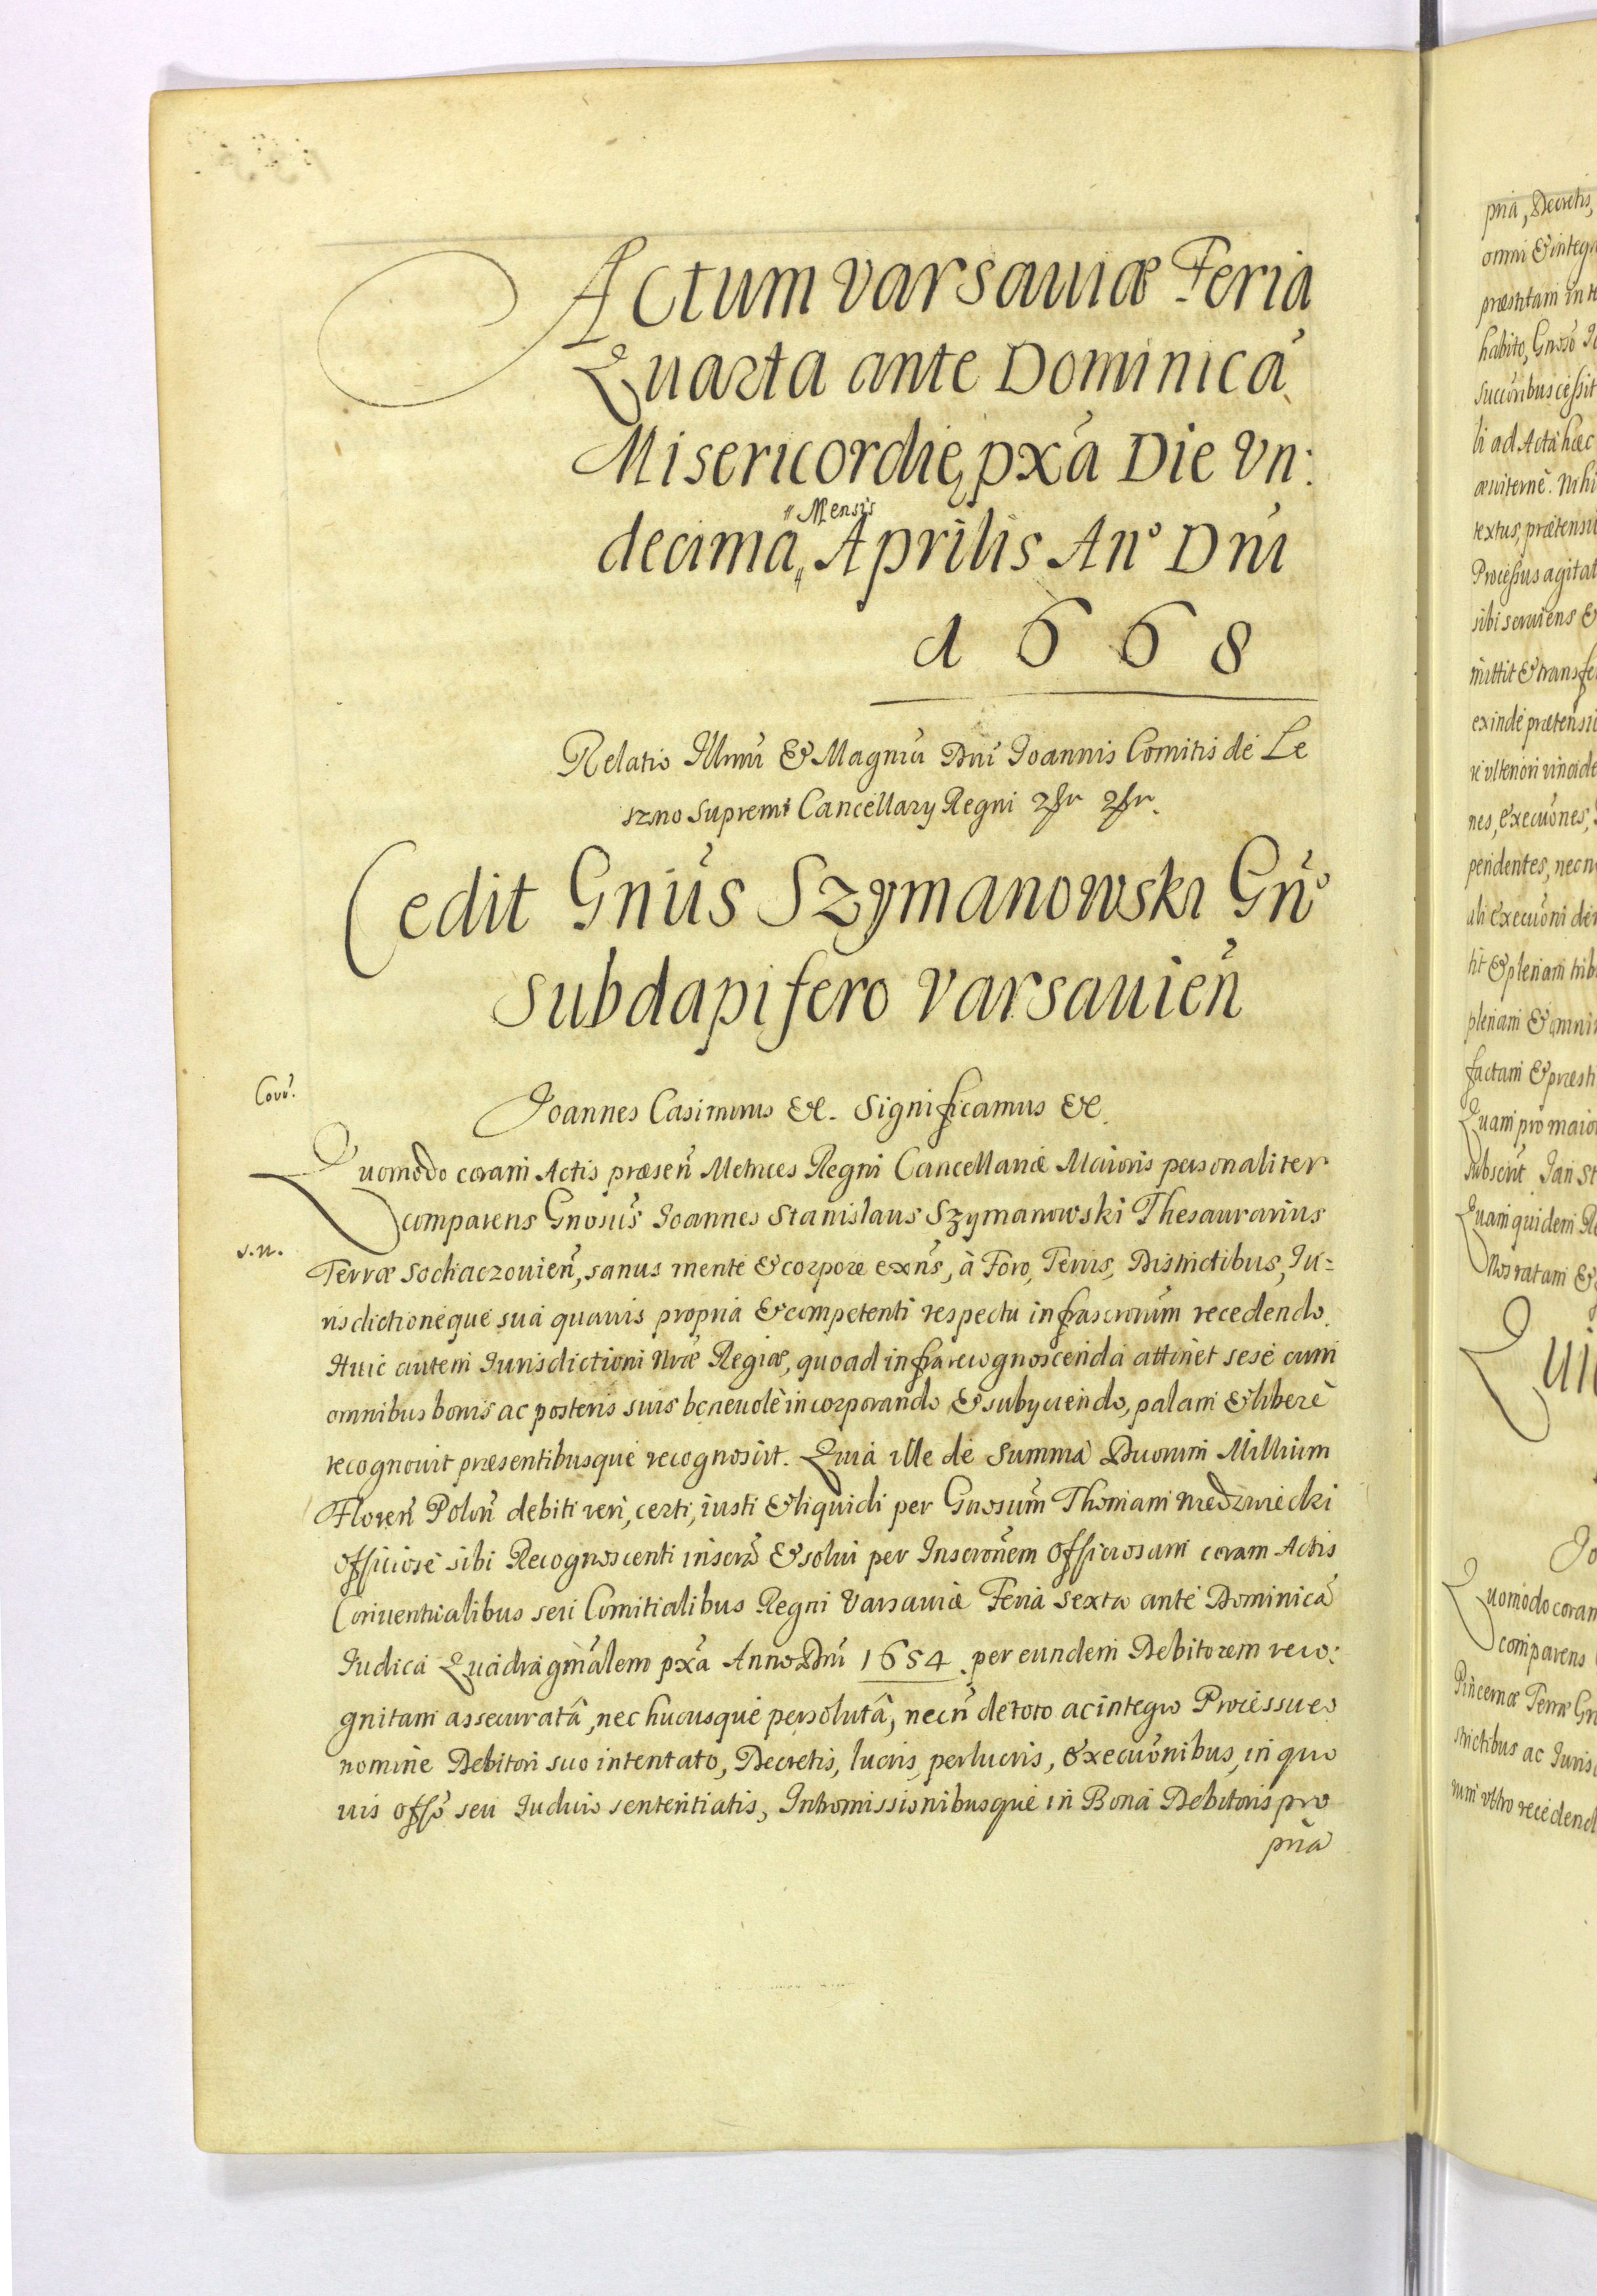 Actum varsauiæ Feria
Quarta ante Dominicā
Misericordię pxã Die Vn:
Mensis
decima Aprilis An° Dnĩ
1668
Relatio Illmĩ & Magnĩ Dnĩ Joannis Comitis de Le
szno Supremi Cancellary Regni
Cedit Gnũs Szymanowski Gñ°
Subdapifero Varsauień
Joannes Casimirus &c. Significamus &c.
Corr.
Quomodo coram Actis præsen̄ Metrices Regni Cancellariæ Maioris personaliter
comparens Gnosũs Joannes Stanislaus Szymanowski Thesaurarius
s.n.
Terræ Sochaczouien̄, sanus mente & corpore exñs, à Foro, Terris, Districtibus, Ju=
risdictioneque sua quauis propria & competenti respectu infrascrorũm recedendo.
Huic autem Jurisdictioni Nræ Regiæ, quoad infra recognoscenda attinet sese cum
omnibus bonis ac posteris suis beneuolè incorporando & subyciendo, palam & liberè
recognouit præsentibusque recognoscit. Quia ille de Summa Duorum Millium
Floren̄ Polon̄ debiti veri, certi, iusti & liquidi per Gnosũm Thomam Niedzwiecki
officiose sibi Recognoscenti & solui per Inscrōnem officiosam coram Actis
Conuentialibus seu Comitialibus Regni Varsauiæ Feria Sexta ante Dominicā
Judica Quadragmãlem pxã Anno Dnĩ 1654. per eundem Debitorem reco:
gnitam assecuratã, nec hucusque persolutã, necñ de toto ac integro Processu eo
nomine Debitori suo intentato, Decretis, lucris, perlucris, execuōnibus, in quo
uis offõ seu Judicio sententiatis, Intromissionibusque in Bona Debitoris pro
pria
pria, Decretis,
omni & integr
præstitam
habito, Gnosõ Jo
cessit
li ad Acta hæc
æuiternè. Nihi
textus, prætensi
Processus agitat
sibi seruiens &
mittit & transfe
exinde prætensi
nes, execuōnes,
pendentes, necn
ali execuōni de
tit & plenam trib
plenam & omni
factam & præsti
Quam pro maio
Subscrit̃ Jan St
Quam quidem Re
Nos ratam &
Qui
Jo
Quomodo coram
comparens
Pincernæ Terræ Gn
strictibus ac Juris
rum vltro recedend